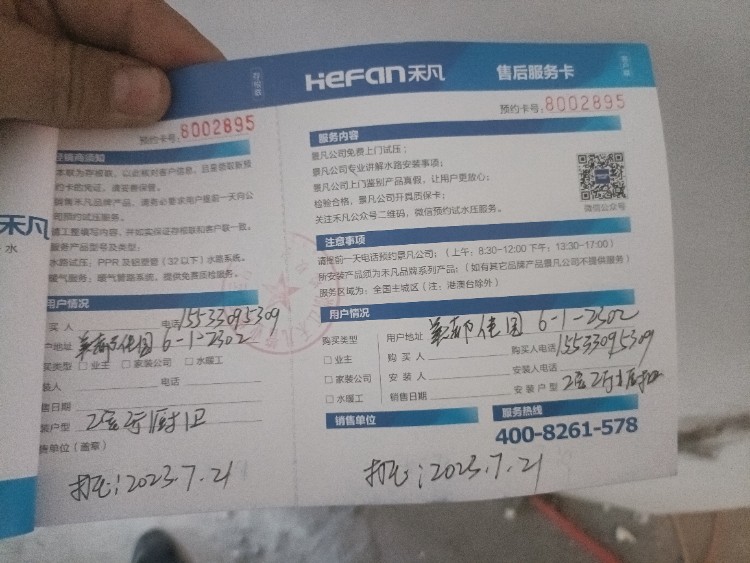 存根联
预约卡号:8002895
经销商须知
本联为存根联，以此核对客户信息，及是领取新预
约卡的凭证，请妥善保管。
销售禾凡品牌产品，请务必要求用户提前一天向公
司预约试压服务。
施工整填写内容，并如实保证存根联和客户联一致。
服务产品型号及类型:
水路试压：PPR 及铝塑管（32 以下）水路系统。
暖气服务：暖气管路系统，提供免费质检服务。
用户情况
买 人
电话 15533095309
户地址
佳园 6-1-2302
买类型 □ 业主 □ 家装公司 □ 水暖工
装人
电话
售日期
装户型 2室2厅1厨1卫
售单位（盖章）
打压:2023.7.21
禾凡
水
HeFan禾凡
售后服务卡
客户联
预约卡号:8002895
服务内容
景凡公司免费上门试压；
景凡公司专业讲解水路安装事项；
景凡公司上门鉴别产品真假，让用户更放心；
检验合格，景凡公司开具质保卡；
关注禾凡公众号二维码，微信预约试水压服务。
微信公众号
注意事项
请提前一天电话预约景凡公司；（上午：8:30-12:00 下午：13:30-17:00）
所安装产品须为禾凡品牌系列产品；（如有其它品牌产品景凡公司不提供服务）
服务区域为：全国主城区（注：港澳台除外）
用户情况
购买类型
□ 业主
□ 家装公司
□ 水暖工
用户地址
佳园 6-1-2302
购 买 人
购买人电话 15533095309
安 装 人
安装人电话
销售日期
安装户型 2室2厅1厨1卫
销售单位
服务热线
400-8261-578
打压:2023.7.21